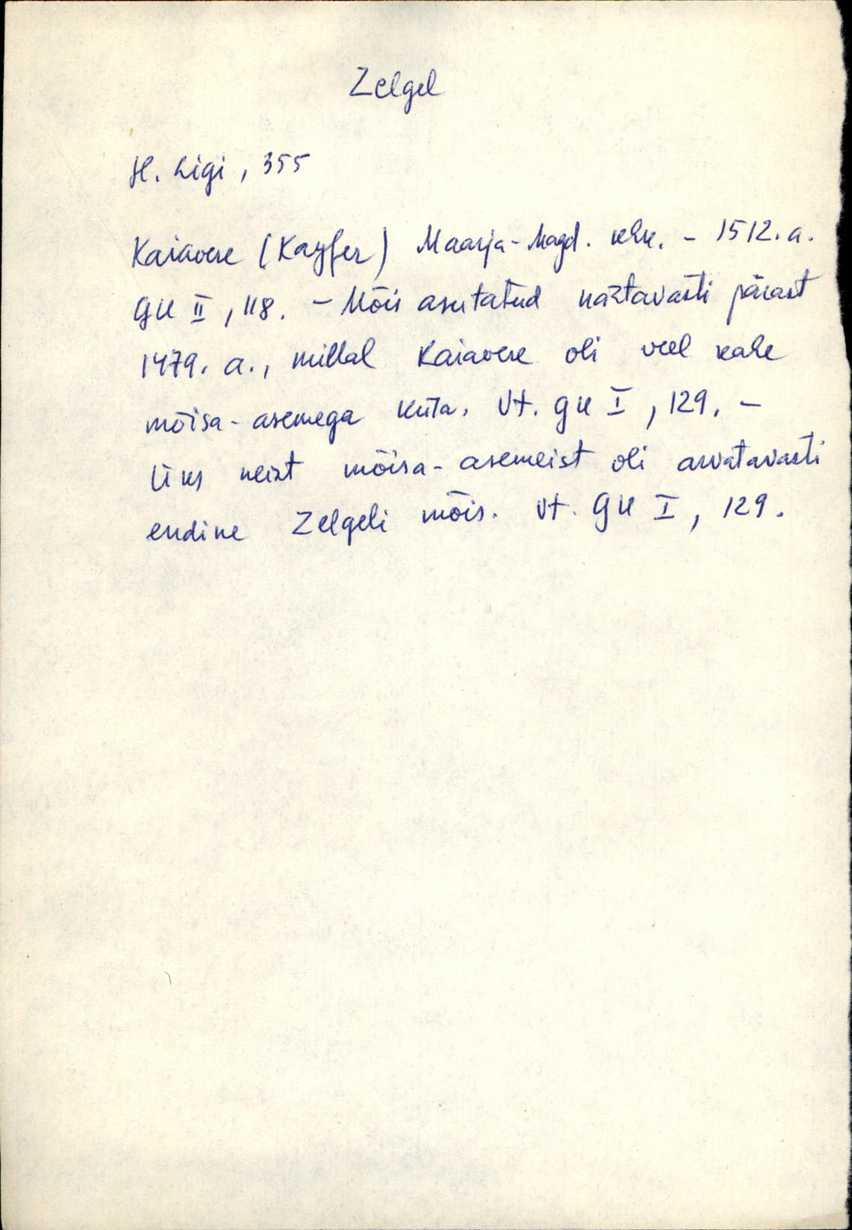 Zelgel
H. Ligi, 355
Kaiavere (Kayfer) Maarja-Magd. khk. - 1512. a.
GU II, 118. - Mõis asutatud nähtavasti pärast
1479. a., millal Kaiavere oli veel kahe
mõisa-asemega küla. Vt. GU I, 129. -
Üks neist mõisa-asemeist oli arvatavasti
endine Zelgeli mõis. Vt. GU I, 129.